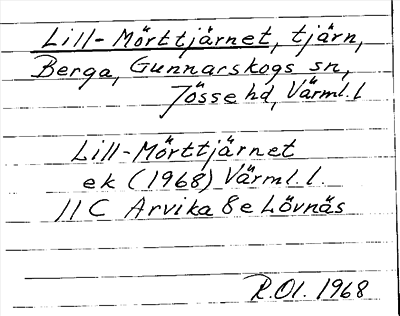 Lill-Mörttjärnet, tjärn,
Berga, Gunnarskogs sn,
Jösse hd, Värml.l
Lill-Mörttjärnet
ek (1968) Värml.l.
11C Arvika 8e Lövnäs
R.Ol. 1968